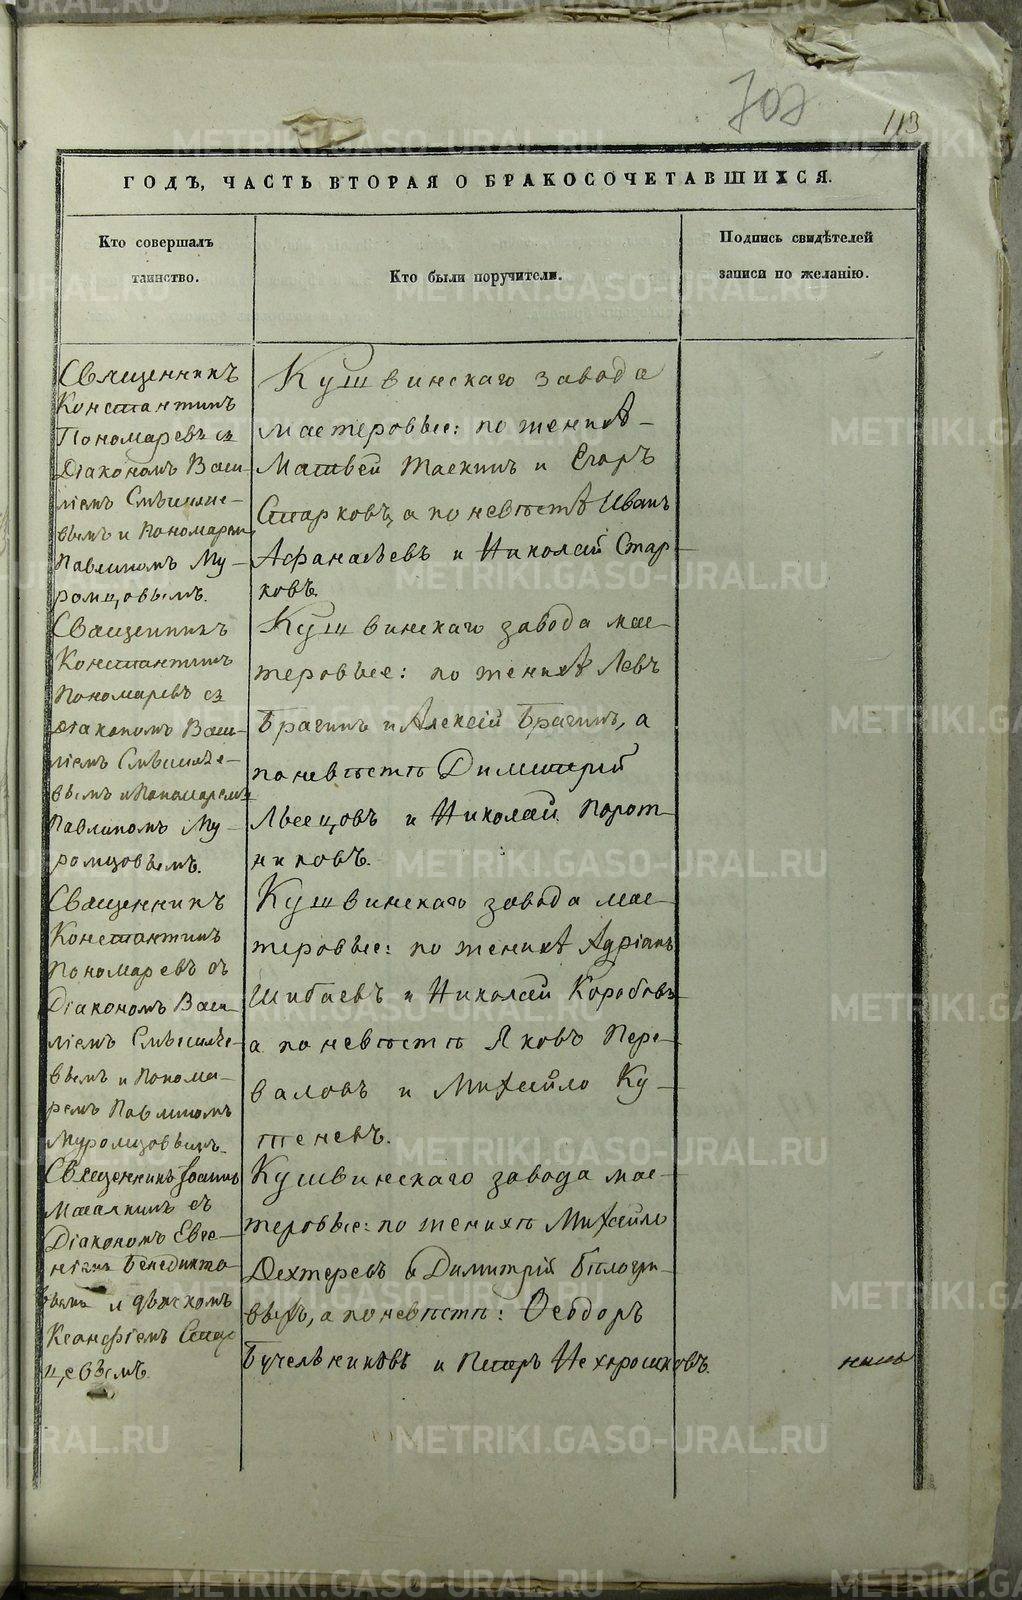 707
113
ГОДЪ, ЧАСТЬ ВТОРАЯ О БРАКОСОЧЕТАВШИХСЯ.
Кто совершалъ
таинство.
Кто были поручители.
Подпись свидѣтелей
записи по желанію.
Священникъ
Константинъ
Пономаревъ съ
Діакономъ Васи
ліемъ Смѣшляе-
вымъ и Пономаремъ
Павлиномъ Му-
ромцовымъ.
Кушвинскаго завода
мастеровые: по женихѣ
Матвей Таскинъ и Егоръ
Старковъ, а по невѣстѣ Иванъ
Афанасьевъ и Николай Стар-
ковъ.
Священникъ
Константинъ
Пономаревъ съ
діакономъ Васи-
ліемъ
вымъ и Пономаремъ
Павлиномъ Му-
ромцовымъ.
Кушвинскаго завода мас-
теровые: по женихѣ Левъ
Брагинъ и Алексій Брагинъ, а
по невѣстѣ Димитрій
и Николай Порот-
никовъ.
Священникъ
Константинъ
Пономаревъ съ
Діакономъ Васи-
ліемъ
вымъ и Понома-
ремъ Павлиномъ
Муромцовымъ.
Кушвинскаго завода мас-
теровые: по женихѣ Адріанъ
Шибаевъ и Николай Коробовъ
а по невѣстѣ Яковъ Пере-
валовъ и Михайло Ку-
теневъ.
Священникъ Іоаннъ
съ
Діакономъ Евге-
ніемъ Бенедикто
вымъ и дьячкомъ
Ксанфіемъ Стар
цевымъ.
Кушвинскаго завода мас-
теровые: по женихѣ Михайло
Дехтеревъ и Димитрій Бѣлогри-
выхъ, а по невѣстѣ: Ѳеодоръ
Бучельниковъ и Петръ Нехорошковъ.